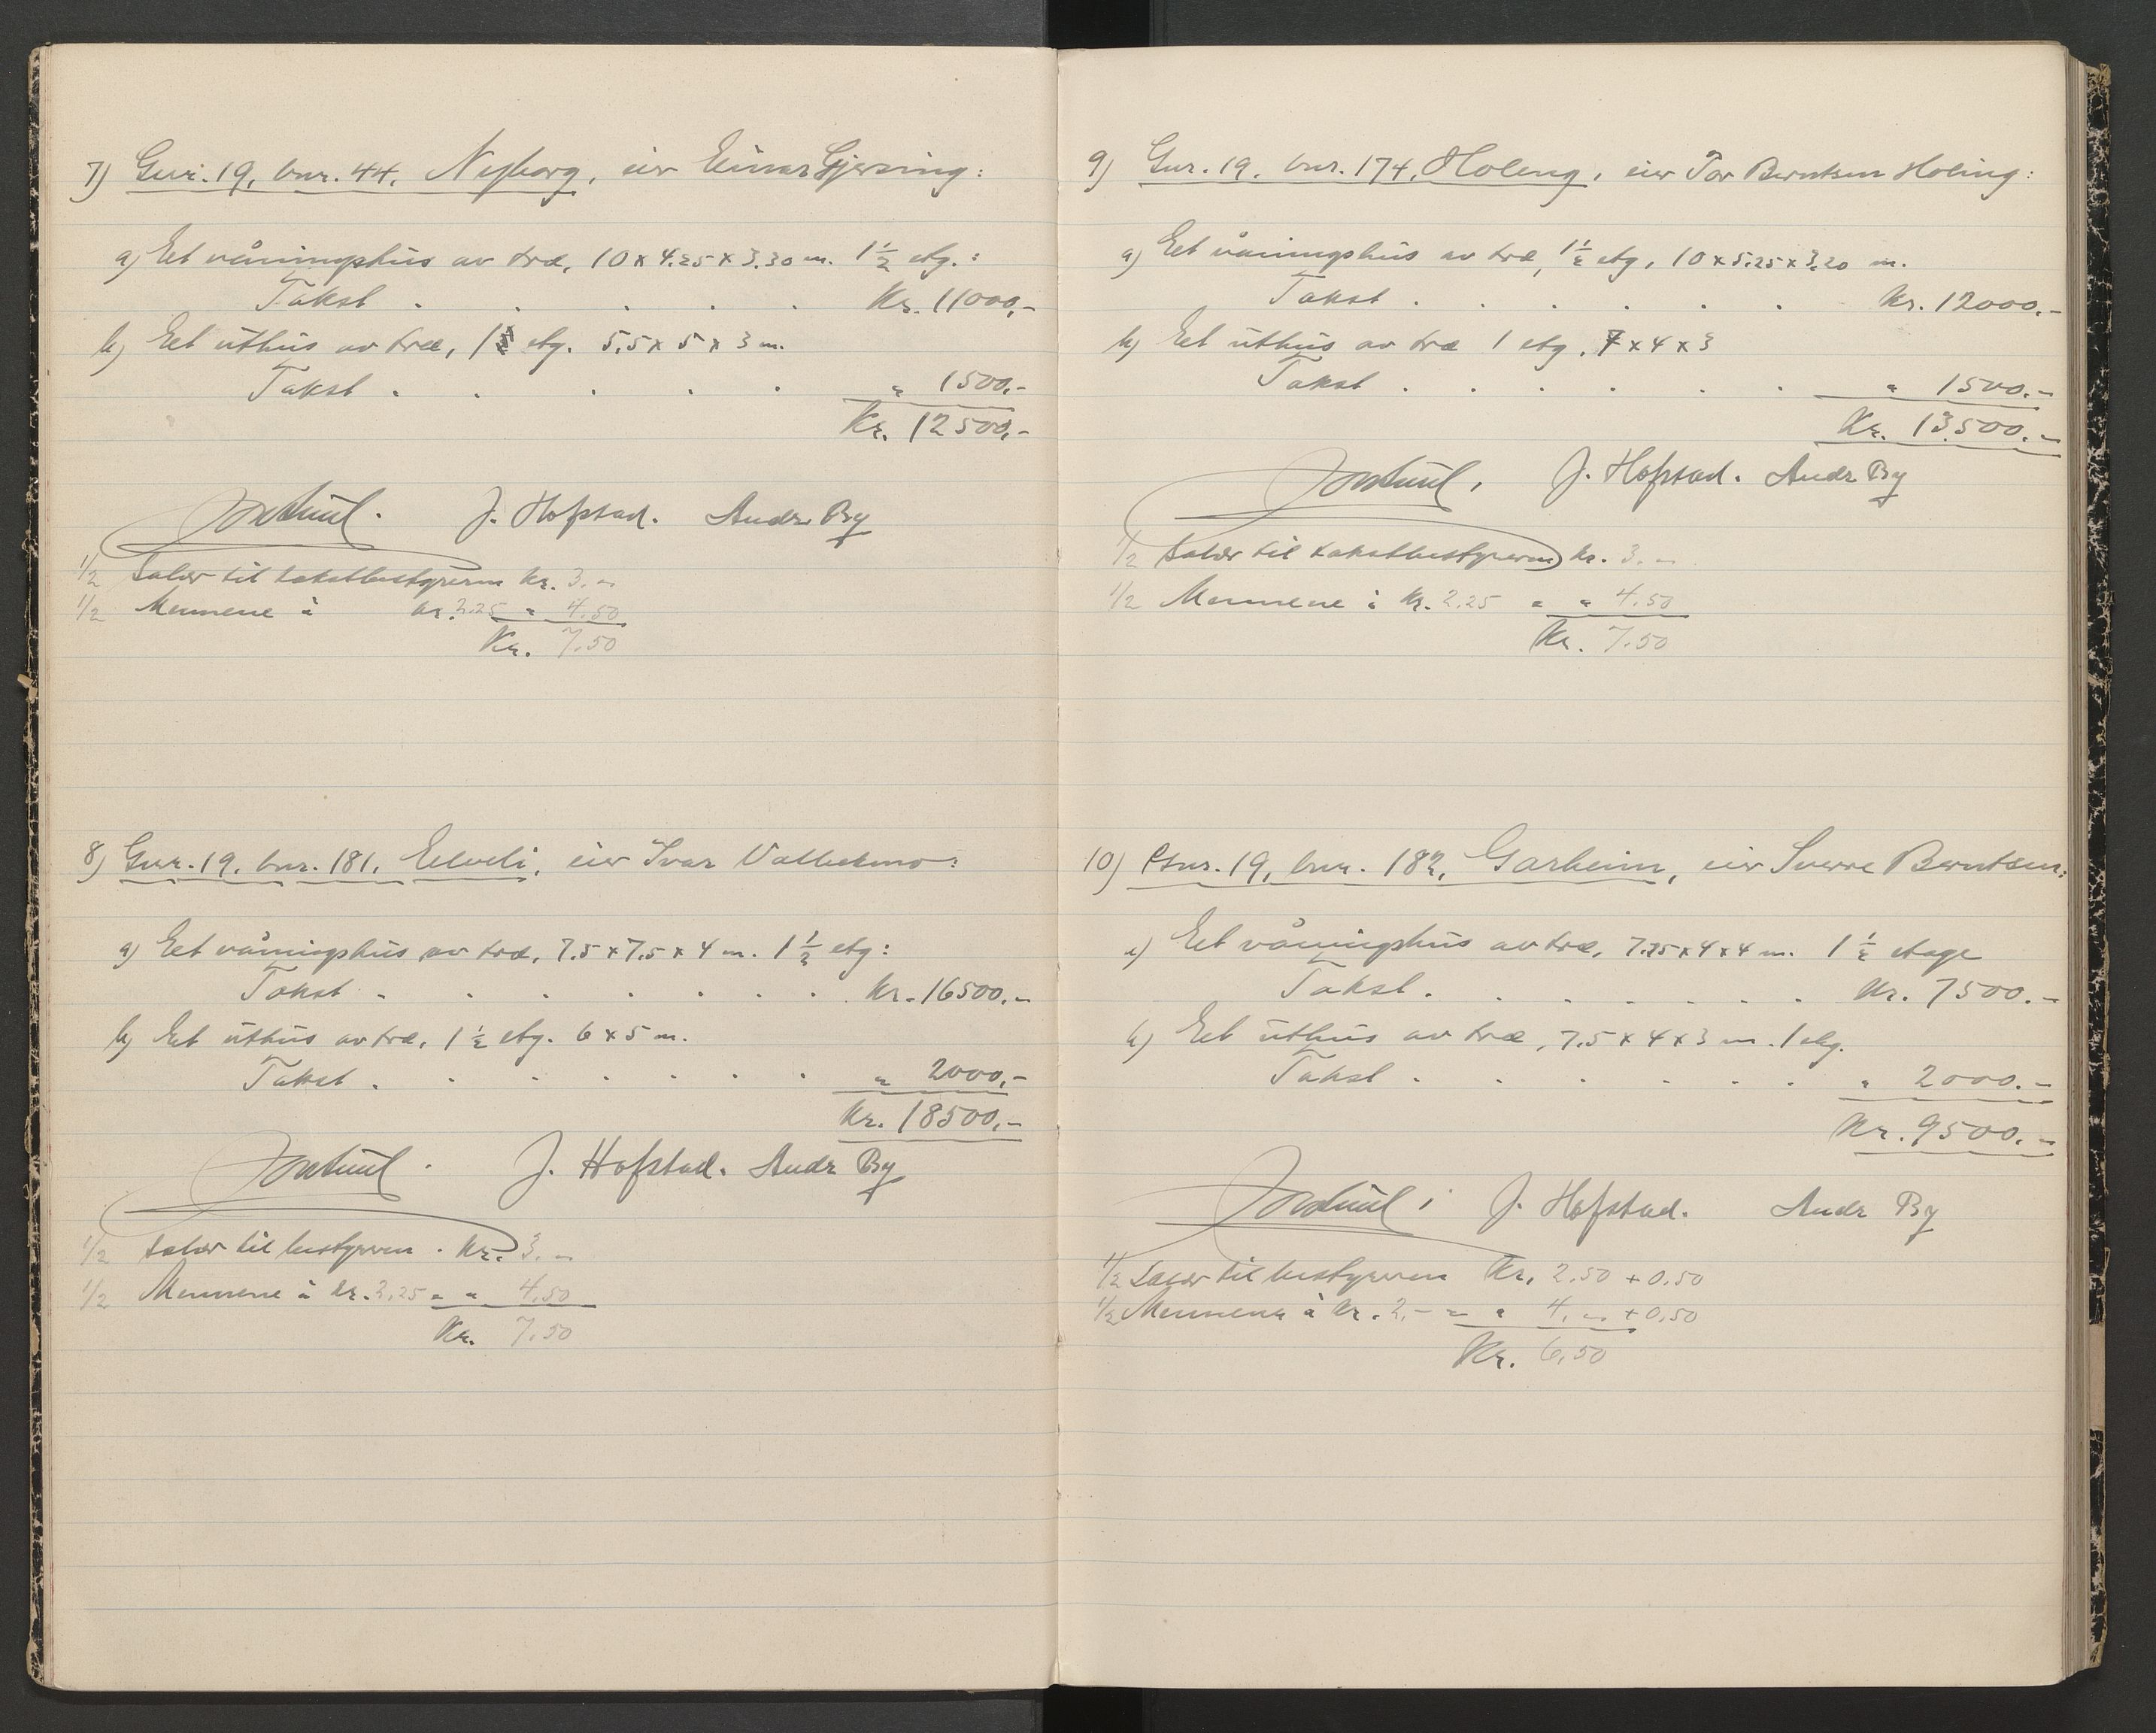 7) Gnr. 19, bnr. 44, Nyborg, eier Einar Gjersing:
a) Eet våningshus av træ, 10 x 4.25 x 3.30 m. 1 1/2 etg.:
Takst . . . . . Kr. 11000,-
b) Eet uthus av træ, 1 etg. 5,5 x 5 x 3 m.
Takst . . . . . " 1500,-
Kr. 12500,-
J. Hofstad. Andr. By
1/2 Salær til takstbestyreren Kr. 3.-
1/2 Mennene à kr. 2.25 = " 4.50
Kr. 7.50
8) Gnr. 19, bnr. 181, Elveli, eier Ivar Valbekmo:
a) Eet våningshus av træ, 7.5 x 7.5 x 4 m. 1 1/2 etg:
Takst . . . . . . . Kr. 16500,-
b) Eet uthus av træ, 1 1/2 etg. 6 x 5 m.
Takst . . . . . . . " 2000,-
Kr. 18500,-
J. Hofstad. Andr By
1/2 Salær til bestyreren . Kr. 3.-
1/2 Mennene à kr. 2,25 = " 4,50
Kr. 7.50
9) Gnr. 19, bnr. 174, Moleng, eier Tor Berntsen Moling:
a) Eet våningshus av træ, 1 1/2 etg, 10 x 5.25 x 3.20 m.
Takst . . . . . . Kr. 12000.-
b) Eet uthus av træ 1 etg. 7 x 4 x 3
Takst . . . . . . " 1500.-
Kr. 13.500.-
J. Hofstad. Andr By
1/2 Salær til takstbestyreren kr. 3.-
1/2 Mennene à kr. 2.25 = " 4.50
Kr. 7.50
10) Gnr. 19, bnr. 182, Garheim, eier Sverre Berntsen:
a) Eet våningshus av træ, 7.75 x 4 x 4 m. 1 1/2 etage
Takst . . . . . . . Kr. 7500.-
b) Eet uthus av træ, 7.5 x 4 x 3 m. 1 etg.
Takst . . . . . . " 2000.-
Kr. 9500.-
J. Hofstad. Andr By
1/2 Salær til bestyreren Kr. 2.50 + 0.50
1/2 Mennene à kr. 2,- = " 4.- + 0,50
Kr. 6,50